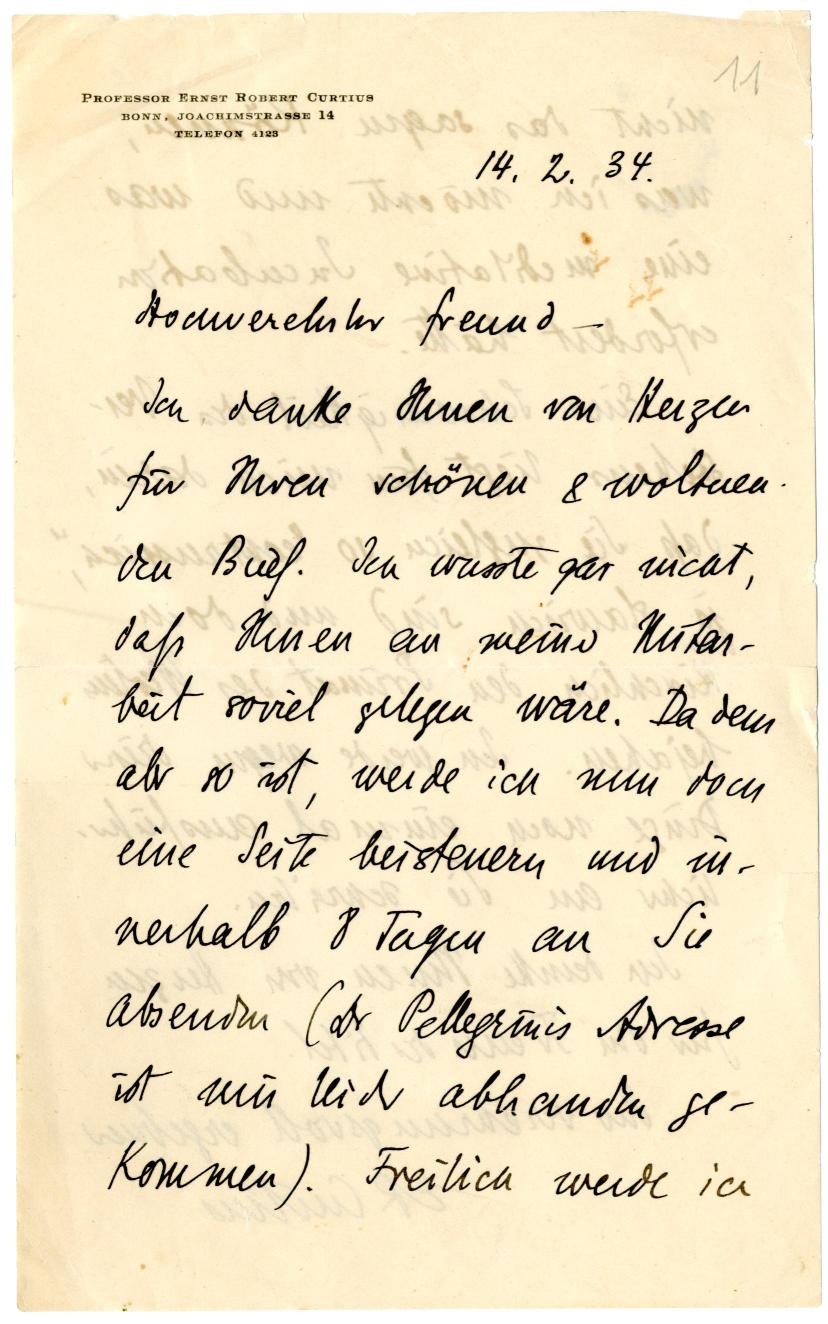 11
PROFESSOR ERNST ROBERT CURTIUS
BONN, JOACHIMSTRASSE 14
TELEFON 4123
14. 2. 34.
Hochverehrter Freund –
Ich danke Ihnen von Herzen
für Ihren schönen & woltuen-
den Brief. Ich wusste gar nicht,
daß Ihnen an meiner Mitar-
beit soviel gelegen wäre. Da dem
aber so ist, werde ich nun doch
eine Seite beisteuern und in-
nerhalb 8 Tagen an Sie
absenden (Dr Pellegrinis Adresse
ist mir leider abhanden ge-
kommen). Freilich werde ich